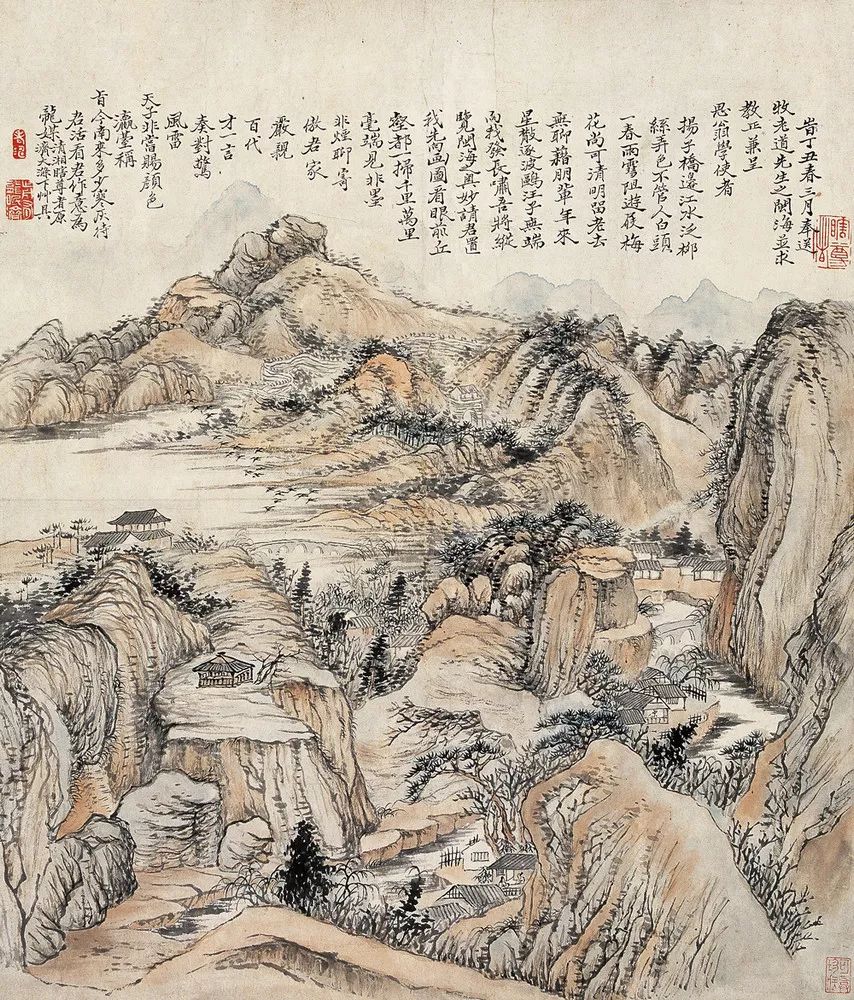 旹丁丑春三月奉送
牧老道先生之閩海並求
教正兼呈
思翁學使者
揚子橋邊江水泛柳
絲弄色不管人白頭
一春雨雪阻遊屐梅
花尚可清明留老去
無聊藉朋輩年來
星散逐波鷗汪子無端
向我發長嘯吾將縱
覽閩海奧妙請君置
我先画圖看眼前丘
壑都一掃千里萬里
毫端見非墨
非煙聊寄
傲君家
嚴親
百代
才一言
奏對驚
風雷
天子非常賜顏色
瀛臺稱
旨今南來多少寒灰待
君活看君行意為
龍媒 清湘瞎尊者原
濟大滌下艸具
瞎尊者